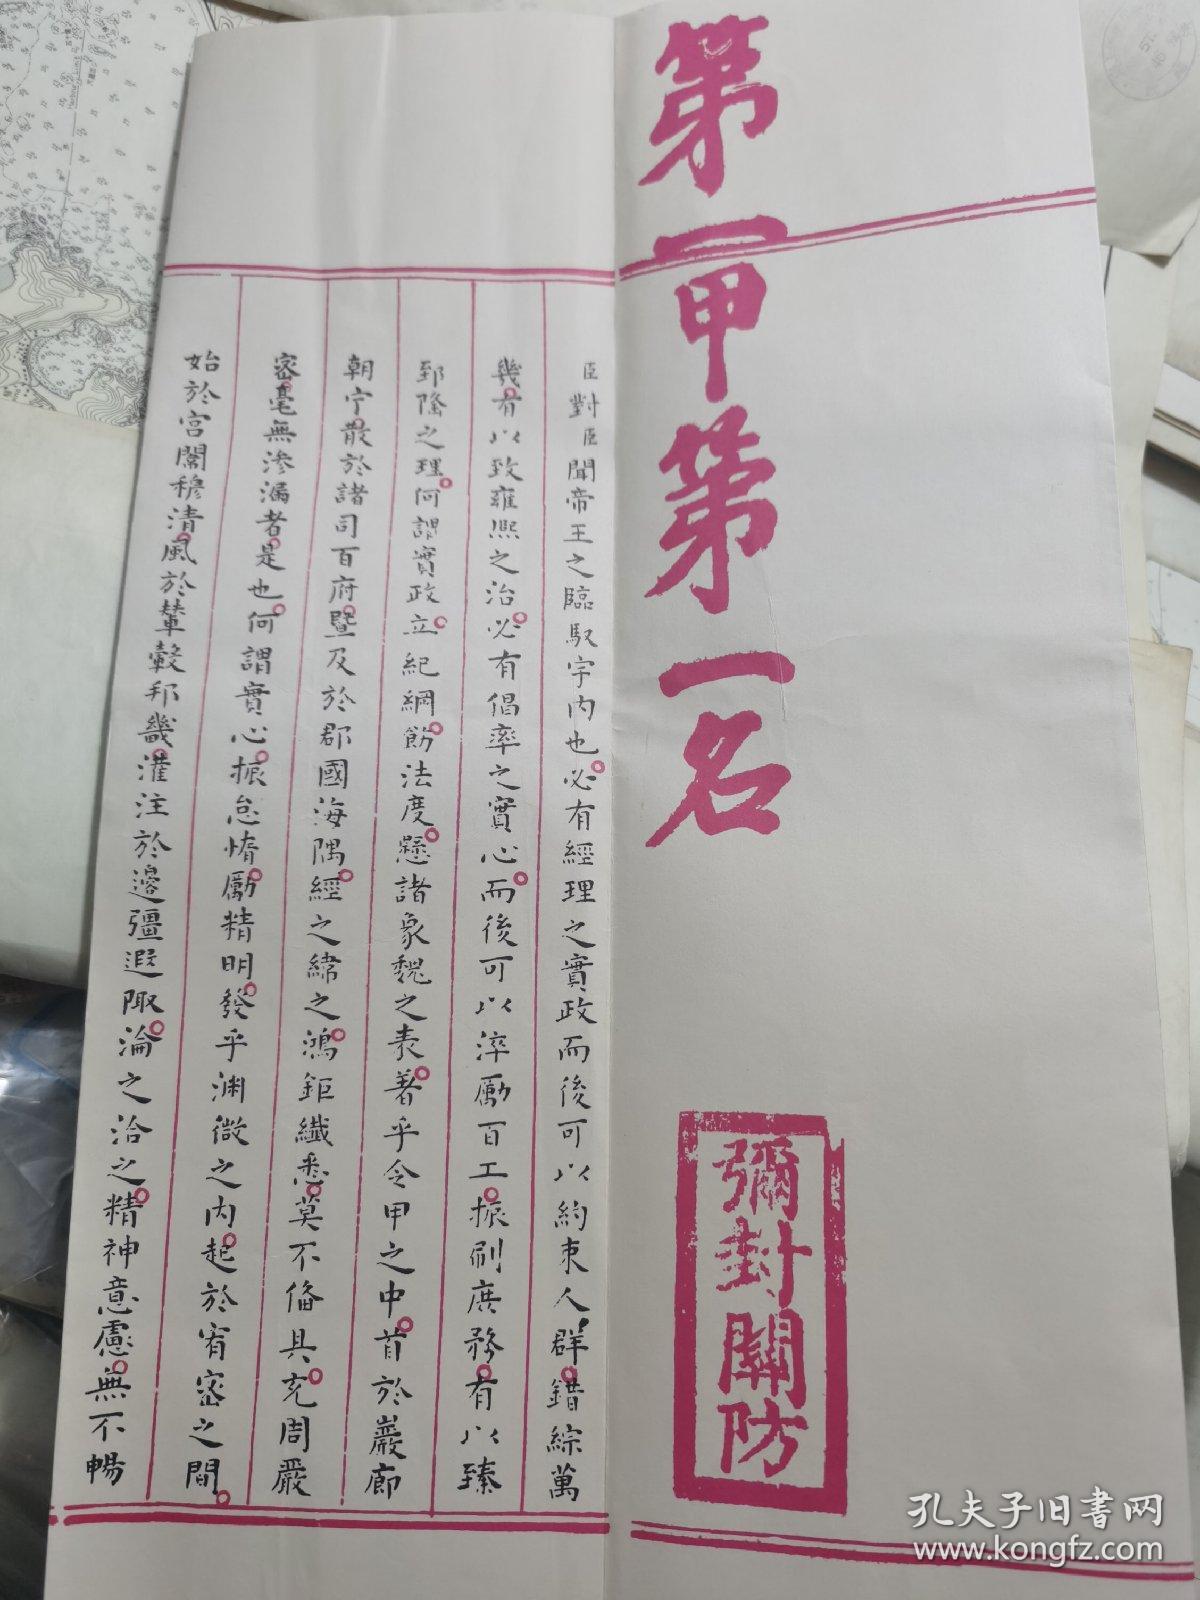 第一甲第一名
彌封關防
臣對臣聞帝王之臨馭宇内也必有經理之實政而後可以約束人群錯綜萬
幾有以致雍熙之治必有倡率之實心而後可以淬勵百工振刷庶務有以臻
郅隆之理何謂實政立紀綱飭法度懸諸象魏之表著乎令甲之中首於巖廊
朝宁散於諸司百府暨及於郡國海隅經之緯之鴻鉅纖悉莫不備具充周嚴
密毫無滲漏者是也何謂實心振怠惰勵精明發乎渊微之内起於宥密之間
始於宮闈穆清風於輦轂邦畿灌注於邊疆遐陬淪之洽之精神意慮無不暢
孔夫子旧书网
www.kongfz.com